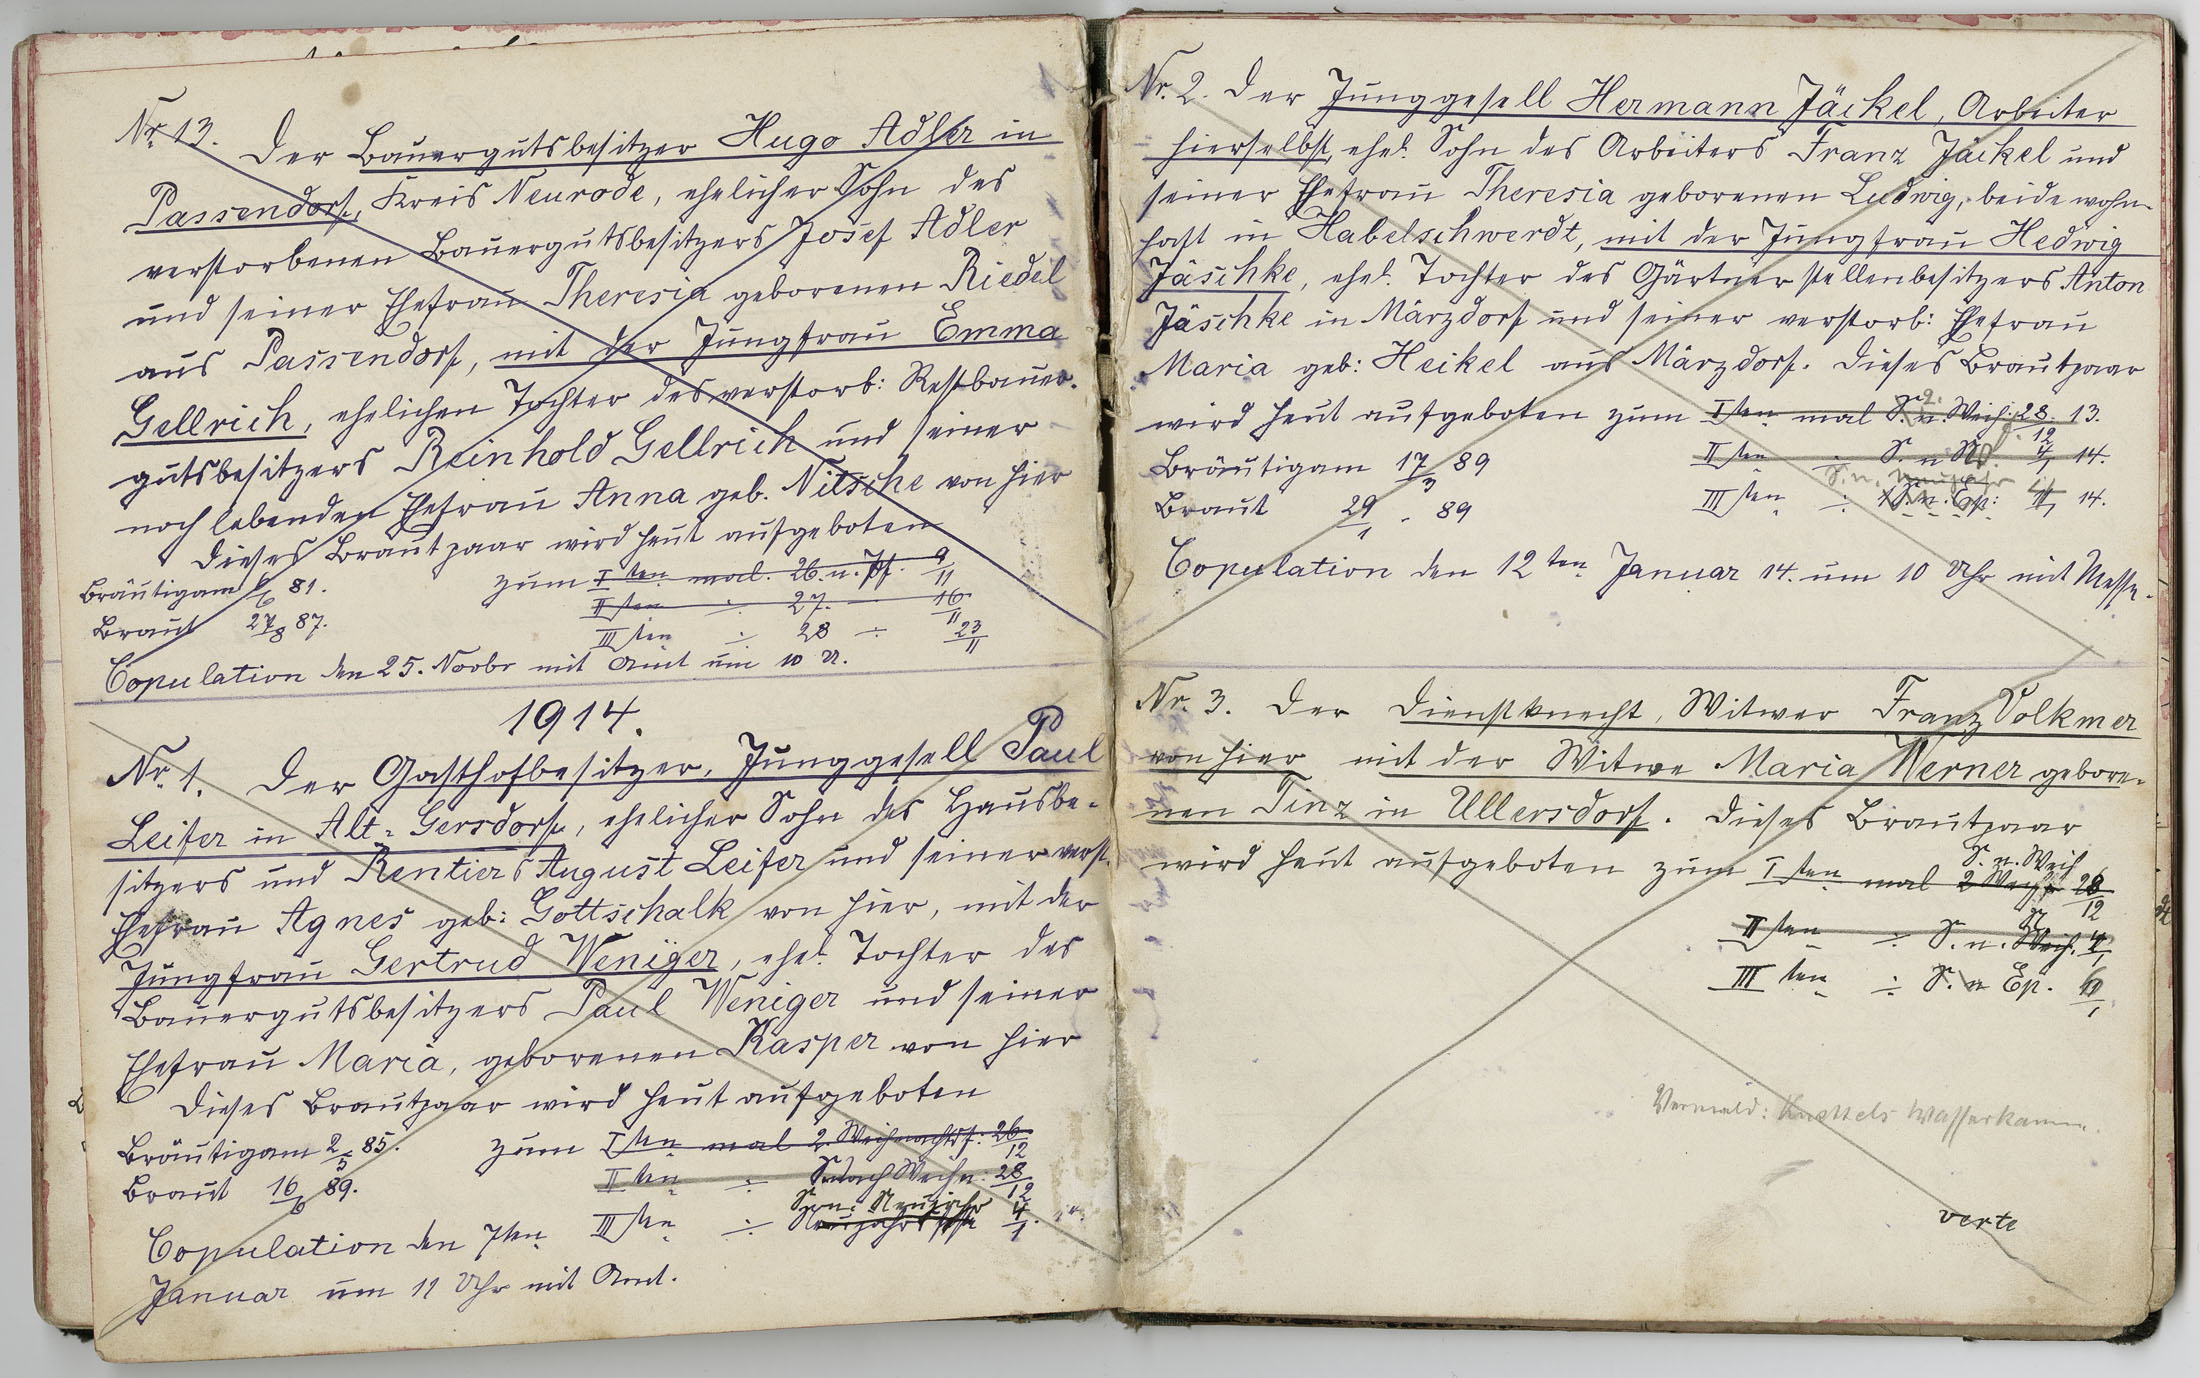 Nr. 13. Der Bauergutsbesitzer Hugo Adler in
Passendorf, Kreis Neurode, ehelicher Sohn des
verstorbenen Bauergutsbesitzers Josef Adler
und seiner Ehefrau Theresia geborenen Riedel
aus Passendorf, mit der Jungfrau Emma
Gellrich, ehelichen Tochter des verstorb: Restbauer-
gutsbesitzers Reinhold Gellrich und seiner
noch lebenden Ehefrau Anna geb. Nitsche von hier
Dieses Brautpaar wird heut aufgeboten
Bräutigam 81.
zum I ten mal. 26. n. Pf. 9/11
Braut 27/8 87.
II ten ÷ 27. — 16/11
III ten ÷ 28 ÷ 23/11
Copulation den 25. Novbr mit Amt um 10 U.
1914.
Nr. 1. Der Gasthofbesitzer, Junggesell Paul
Leifer in Alt-Gersdorf, ehelicher Sohn des Hausbe-
sitzers und Rentiers August Leifer und seiner verst.
Ehefrau Agnes geb: Gottschalk von hier, mit der
Jungfrau Gertrud Weniger, ehel. Tochter des
Bauergutsbesitzers Paul Weniger und seiner
Ehefrau Maria, geborenen Kasper von hier
Dieses Brautpaar wird heut aufgeboten
Bräutigam 2/5 85.
zum I ten mal 2. Weihnachtsf: 26/12
Braut 16/6 89.
II ten ÷ S. nach Weihn: 28/12
S. n. Neujahr
III ten ÷ Neujahrsfeste 4/1.
Copulation den 7ten
Januar um 11 Uhr mit Amt.
Nr. 2. Der Junggesell Hermann Jäckel, Arbeiter
hierselbst, ehel. Sohn des Arbeiters Franz Jäckel und
seiner Ehefrau Theresia geborenen Ludwig, beide wohn-
haft in Habelschwerdt, mit der Jungfrau Hedwig
Jäschke, ehel. Tochter des Gärtnerstellenbesitzers Anton
Jäschke in Märzdorf und seiner verstorb: Ehefrau
Maria geb: Heikel aus Märzdorf. Dieses Brautpaar
wird heut aufgeboten zum I ten mal S. n. Weih. 28/12 13.
Bräutigam 17/3 89
II ten ÷ S. n. 4/1 14.
S. n. Neujahr
Braut 29/1 . 89
III ten ÷ S. n. Ep: 11/1 14.
Copulation den 12 ten Januar 14. um 10 Uhr mit Messe.
Nr. 3. Der Dienstknecht, Witwer Franz Volkmer
von hier mit der Witwe Maria Werner gebore-
nen Tinz in Ullersdorf. Dieses Brautpaar
S. n. Weih
wird heut aufgeboten zum I ten mal 2 Weihf 28/12
II ten ÷ S. n. Weih. 4/1
III ten ÷ S. n Ep. 1
verte